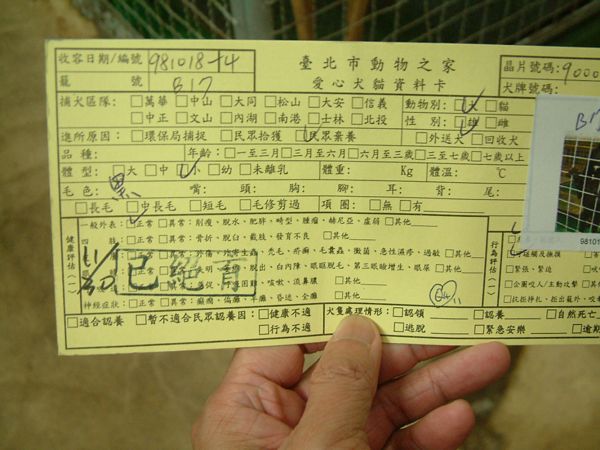 臺北市動物之家
愛心犬貓資料卡
收容日期/編號 981018-14
籠號 B17
晶片號碼: 9000
犬牌號碼:
捕犬區隊: □萬華 □中山 □大同 □松山 □大安 □信義 動物別: □犬 □貓
□中正 □文山 □內湖 □南港 □士林 □北投 性別: □雄 □雌
進所原因: □環保局捕捉 □民眾拾獲 □民眾棄養 □外送犬 □回收犬
品種: 年齡: □一至三月 □三月至六月 □六月至三歲 □三至七歲 □七歲以上
體型: □大 □中 □小 □幼 □未離乳 體重: Kg 體溫: ℃
毛色: 黑 嘴: 頭: 胸: 腳: 耳: 背: 尾:
□長毛 □中長毛 □短毛 □毛修剪過 項圈: □無 □有
健康評估(一)
一般外表: □正常 □異常: 削瘦、脫水、肥胖、畸型、腫瘤、赫尼亞、虛弱 □其他
四肢: □正常 □異常: 骨折、脫臼、截肢、發育不良 □其他
禿毛、疥癬、毛囊蟲、黴菌、急性濕疹、過敏 □其他
脫出、白內障、眼瞼脫毛、第三眼瞼增生、眼屎 □其他
困難、咳嗽、流鼻膿 □其他
神經症狀: □正常 □異常: 癲癇、偏癱、半癱、昏迷、全癱 □其他
11/30 已絕育
行為評估(一)
□緊張、緊迫
□企圖咬人/主動攻擊
□適合認養 □暫不適合民眾認養因: □健康不適
□行為不適
犬隻處理情形: □認領 □認養 □自然死亡
□逃脫 □緊急安樂 □逾期
B17
98101